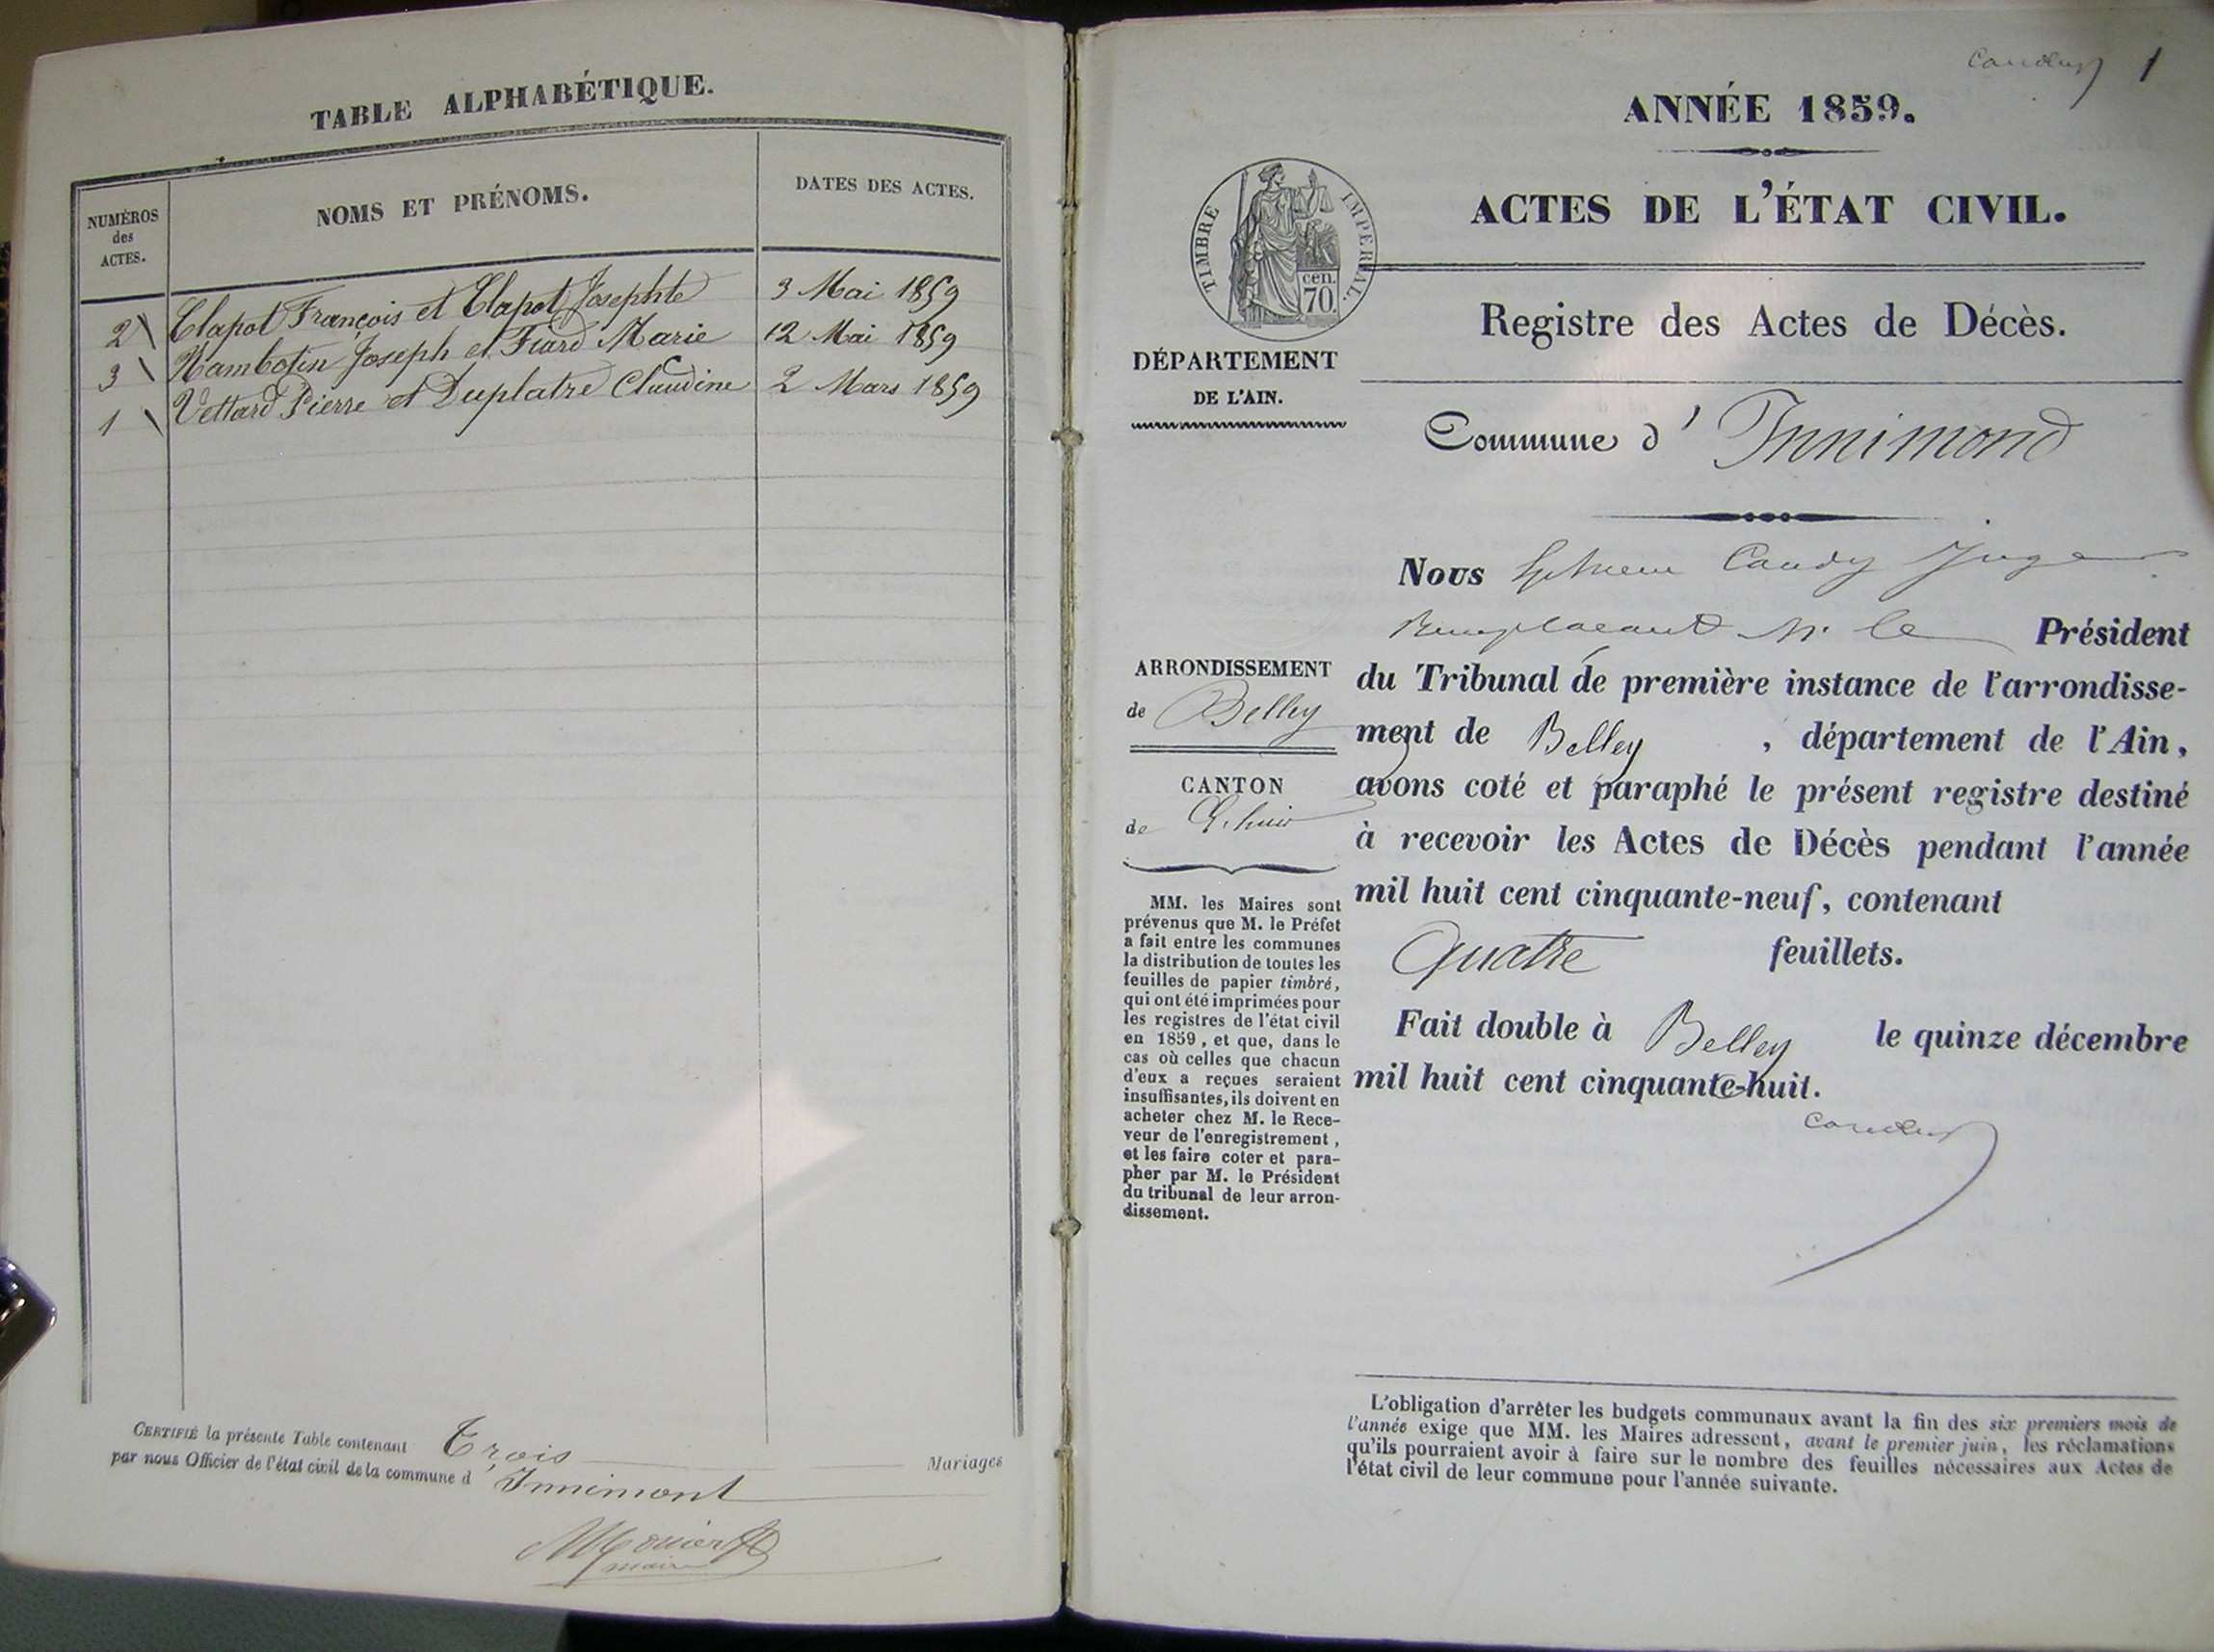 TABLE ALPHABÉTIQUE.
NUMÉROS
des
ACTES.
NOMS ET PRÉNOMS.
DATES DES ACTES.
2 Clapot François et Clapot Josephte 3 Mai 1859
3 Joseph et Fiard Marie 12 Mai 1859
1 Vettard Pierre et Duplatre Claudine 2 Mars 1859
CERTIFIÉ la présente Table contenant Trois Mariages
par nous Officier de l'état civil de la commune d'Innimont
maire
1
ANNÉE 1859.
ACTES DE L'ÉTAT CIVIL.
TIMBRE IMPERIAL.
cen.
70.
Registre des Actes de Décès.
DÉPARTEMENT
DE L'AIN.
Commune d'Innimond
Nous Juge
Remplaçant Mr le Président
du Tribunal de première instance de l'arrondisse-
ment de Belley, département de l'Ain,
avons coté et paraphé le présent registre destiné
à recevoir les Actes de Décès pendant l'année
mil huit cent cinquante-neuf, contenant
Quatre feuillets.
Fait double à Belley le quinze décembre
mil huit cent cinquante-huit.
ARRONDISSEMENT
de Belley
CANTON
de
MM. les Maires sont
prévenus que M. le Préfet
a fait entre les communes
la distribution de toutes les
feuilles de papier timbré,
qui ont été imprimées pour
les registres de l'état civil
en 1859, et que, dans le
cas où celles que chacun
d'eux a reçues seraient
insuffisantes, ils doivent en
acheter chez M. le Rece-
veur de l'enregistrement,
et les faire coter et para-
pher par M. le Président
du tribunal de leur arron-
dissement.
L'obligation d'arrêter les budgets communaux avant la fin des six premiers mois de
l'année exige que MM. les Maires adressent, avant le premier juin, les réclamations
qu'ils pourraient avoir à faire sur le nombre des feuilles nécessaires aux Actes de
l'état civil de leur commune pour l'année suivante.